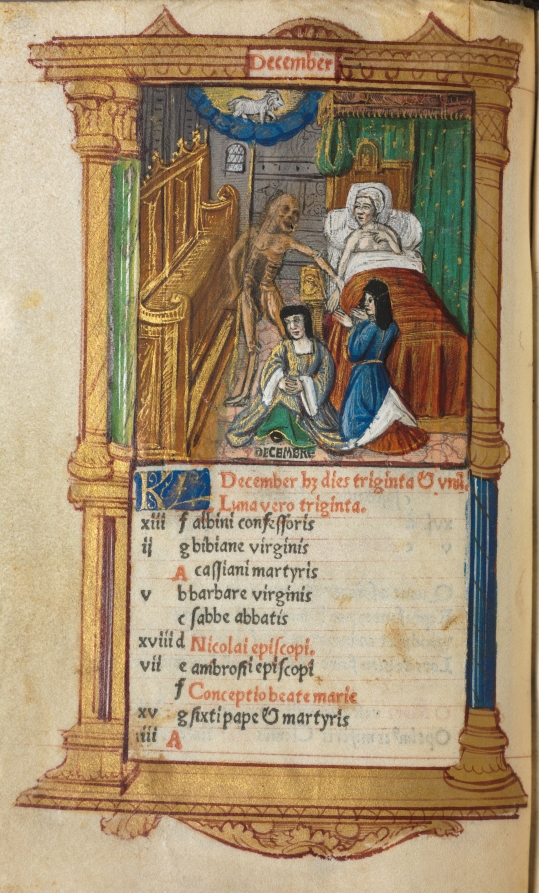 December
DECEMBRE
KL December hʒ dies triginta & vnũ.
Luna vero triginta.
xiii f albini confeſſoris
ij g bibiane virginis
A caſſiani martyris
v b barbare virginis
c ſabbe abbatis
xviii d Nicolai epiſcopi.
vii e ambroſii epiſcopi
f Conceptio beate marie
xv g ſixti pape & martyris
iiii A